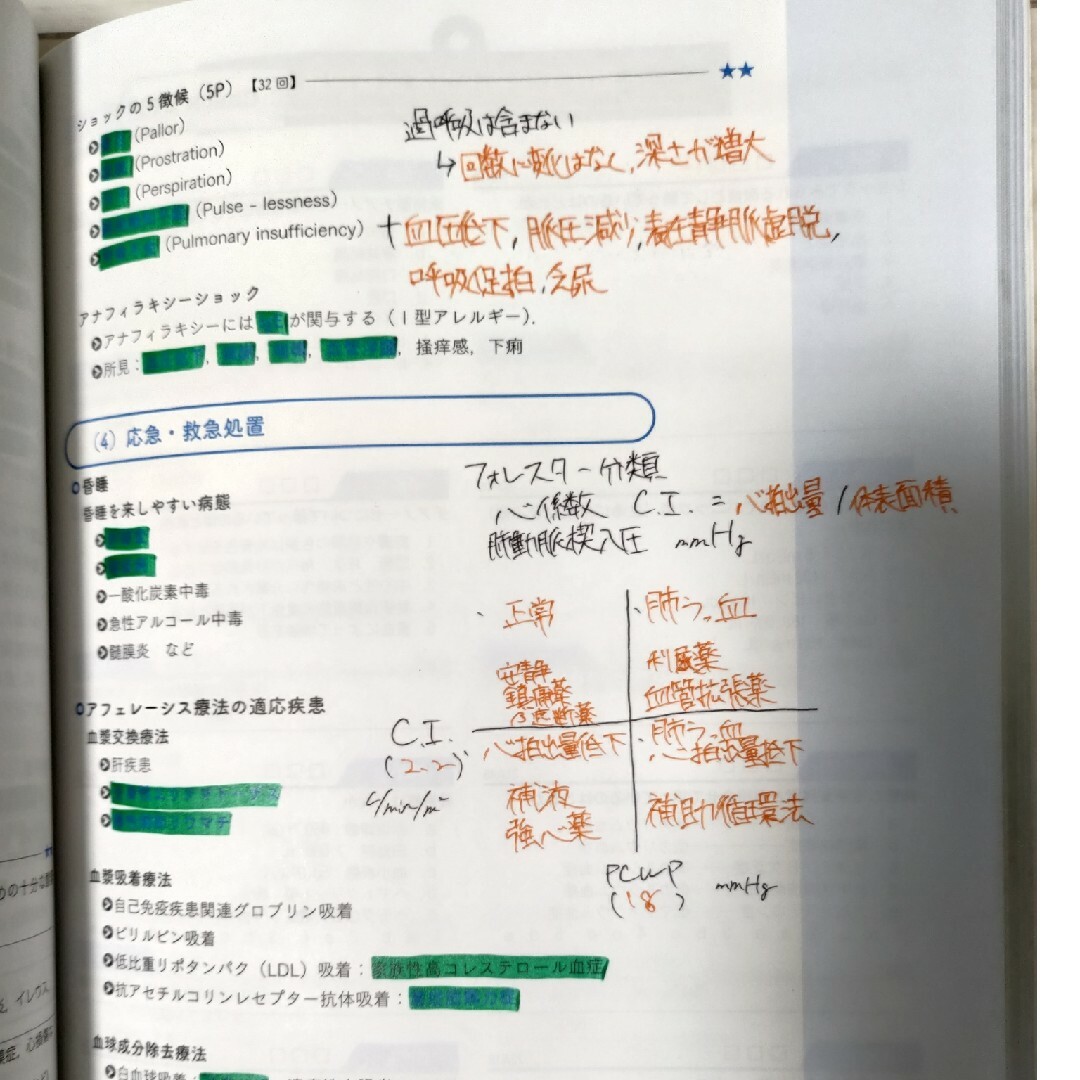 ショックの5徴候（5P）【32回】 ★★
(Pallor)
(Prostration)
(Perspiration)
(Pulse – lessness)
(Pulmonary insufficiency)
過呼吸は含まない
↳ 回数に変化はなく，深さが増大
＋血圧低下，脈圧減少，表在静脈虚脱，
呼吸促拍，乏尿
アナフィラキシーショック
アナフィラキシーには が関与する（I型アレルギー）．
所見： ， ， ， ，掻痒感，下痢
（4）応急・救急処置
昏睡
昏睡を来しやすい病態
一酸化炭素中毒
急性アルコール中毒
髄膜炎 など
フォレスター分類
心係数 C.I. = 心拍出量 / 体表面積
肺動脈楔入圧 mmHg
正常
安静
鎮痛薬
β遮断薬
肺うっ血
利尿薬
血管拡張薬
C.I.
(2.2)
L/min/m²
心拍出量低下
補液
強心薬
肺うっ血
心拍出量低下
補助循環法
PCWP
(18) mmHg
アフェレーシス療法の適応疾患
血漿交換療法
肝疾患
血漿吸着療法
自己免疫疾患関連グロブリン吸着
ビリルビン吸着
低比重リポタンパク（LDL）吸着：家族性高コレステロール血症
抗アセチルコリンレセプター抗体吸着：
血球成分除去療法
白血球吸着：
めの十分な
イレウス，